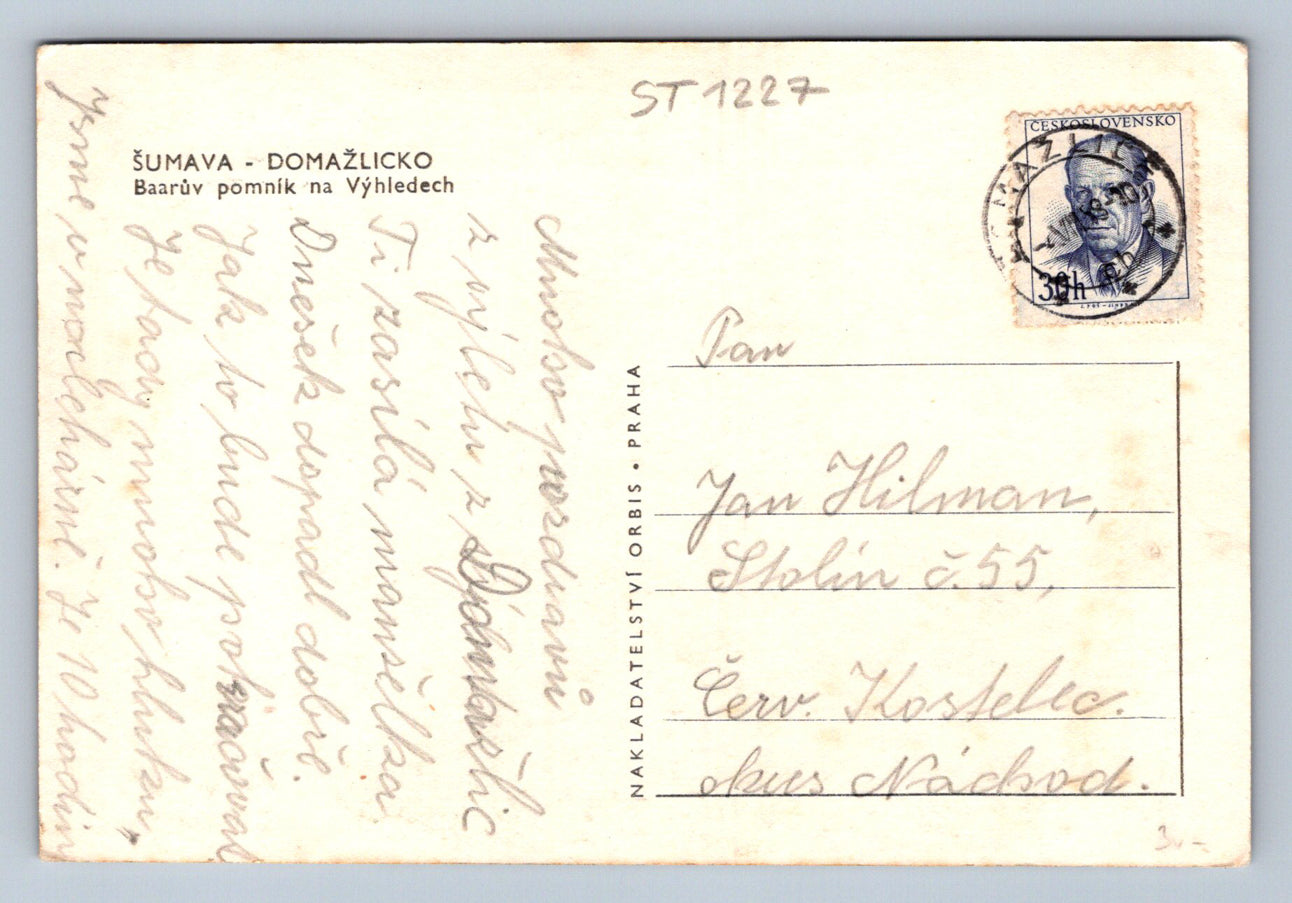 ST 1227
ČESKOSLOVENSKO
30h
ŠUMAVA - DOMAŽLICKO
Baarův pomník na Výhledech
Mnoho pozdravů
z výletu z Domažlic
Ti zasílá mamělka.
Dnešek dopadl dobře.
Jak to bude pokračovat
Je tady mnoho hluku,
Jsme v noclehárně. Je 10 hodin
NAKLADATELSTVÍ ORBIS • PRAHA
Pan
Jan Hilman,
Stolín č. 55,
Červ. Kostelec.
okres Náchod.
3.-